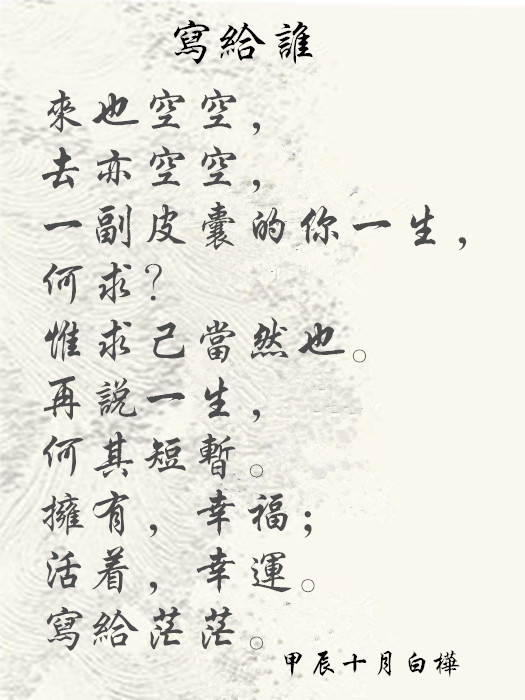 寫給誰
來也空空，
去亦空空，
一副皮囊的你一生，
何求？
惟求己當然也。
再說一生，
何其短暫。
擁有，幸福；
活着，幸運。
寫給茫茫。
甲辰十月白樺